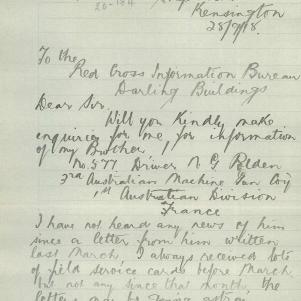 26-184
Kensington
28/7/18.
To the
Red Cross Information Bureau
Darling Buildings
Dear Sir.
Will you kindly make
enquiries for me for information
of my Brother,
No. 577 Driver N G Belden
3rd Australian Machine Gun Coy
1st Australian Division
France
I have not heard any news of him
since a letter from him written
last March, I always received lots
of field service cards before March
but not any since that month, the
letters may be going astray